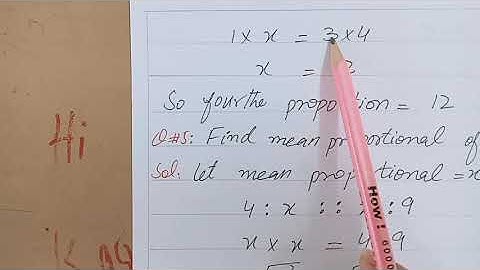 Hi
1 × x = 3 × 4
x =
So fourthe proportion = 12
Q#5: Find mean proportional of
Sol: Let mean proportional = x
4 : x :: : 9
x × x = 4 9
HOW!